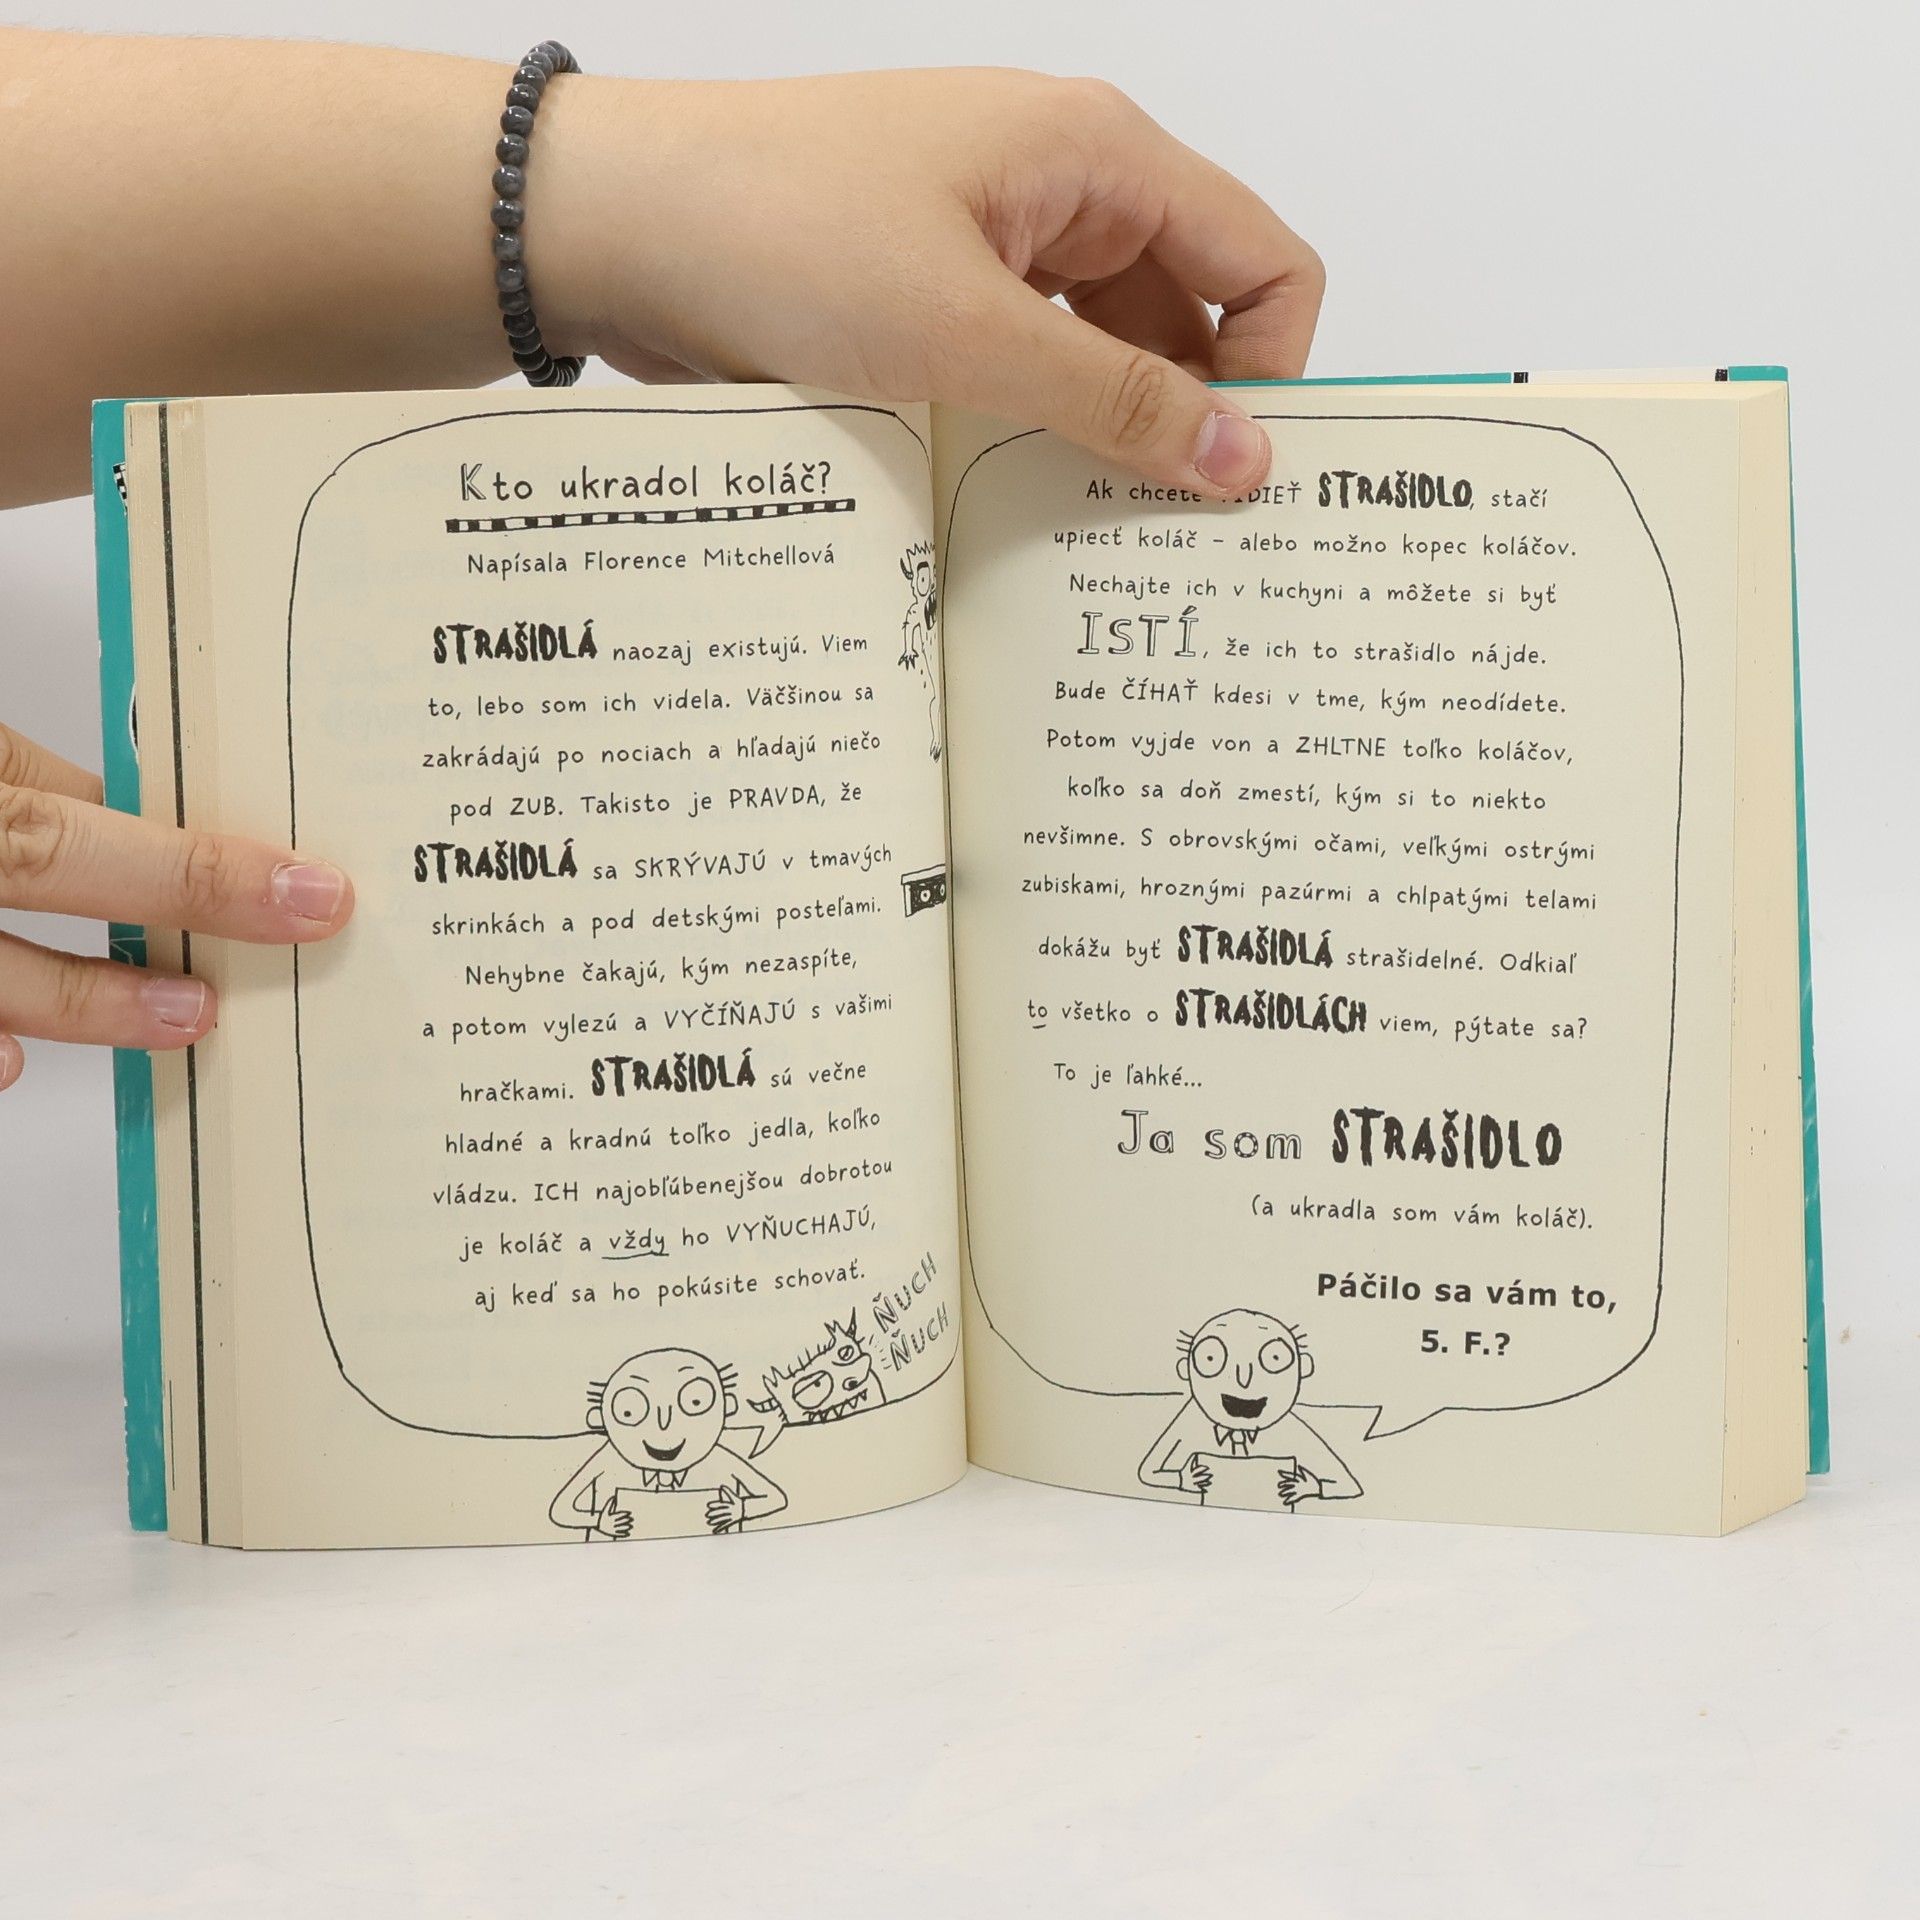 Kto ukradol koláč?
Napísala Florence Mitchellová
STRAŠIDLÁ naozaj existujú. Viem
to, lebo som ich videla. Väčšinou sa
zakrádajú po nociach a hľadajú niečo
pod ZUB. Takisto je PRAVDA, že
STRAŠIDLÁ sa SKRÝVAJÚ v tmavých
skrinkách a pod detskými posteľami.
Nehybne čakajú, kým nezaspíte,
a potom vylezú a VYČÍŇAJÚ s vašimi
hračkami. STRAŠIDLÁ sú večne
hladné a kradnú toľko jedla, koľko
vládzu. ICH najobľúbenejšou dobrotou
je koláč a vždy ho VYŇUCHAJÚ,
aj keď sa ho pokúsite schovať.
ŇUCH
ŇUCH
Ak chcete STRAŠIDLO, stačí
upiecť koláč – alebo možno kopec koláčov.
Nechajte ich v kuchyni a môžete si byť
ISTÍ, že ich to strašidlo nájde.
Bude ČÍHAŤ kdesi v tme, kým neodídete.
Potom vyjde von a ZHLTNE toľko koláčov,
koľko sa doň zmestí, kým si to niekto
nevšimne. S obrovskými očami, veľkými ostrými
zubiskami, hroznými pazúrmi a chlpatými telami
dokážu byť STRAŠIDLÁ strašidelné. Odkiaľ
to všetko o STRAŠIDLÁCH viem, pýtate sa?
To je ľahké...
Ja som STRAŠIDLO
(a ukradla som vám koláč).
Páčilo sa vám to,
5. F.?